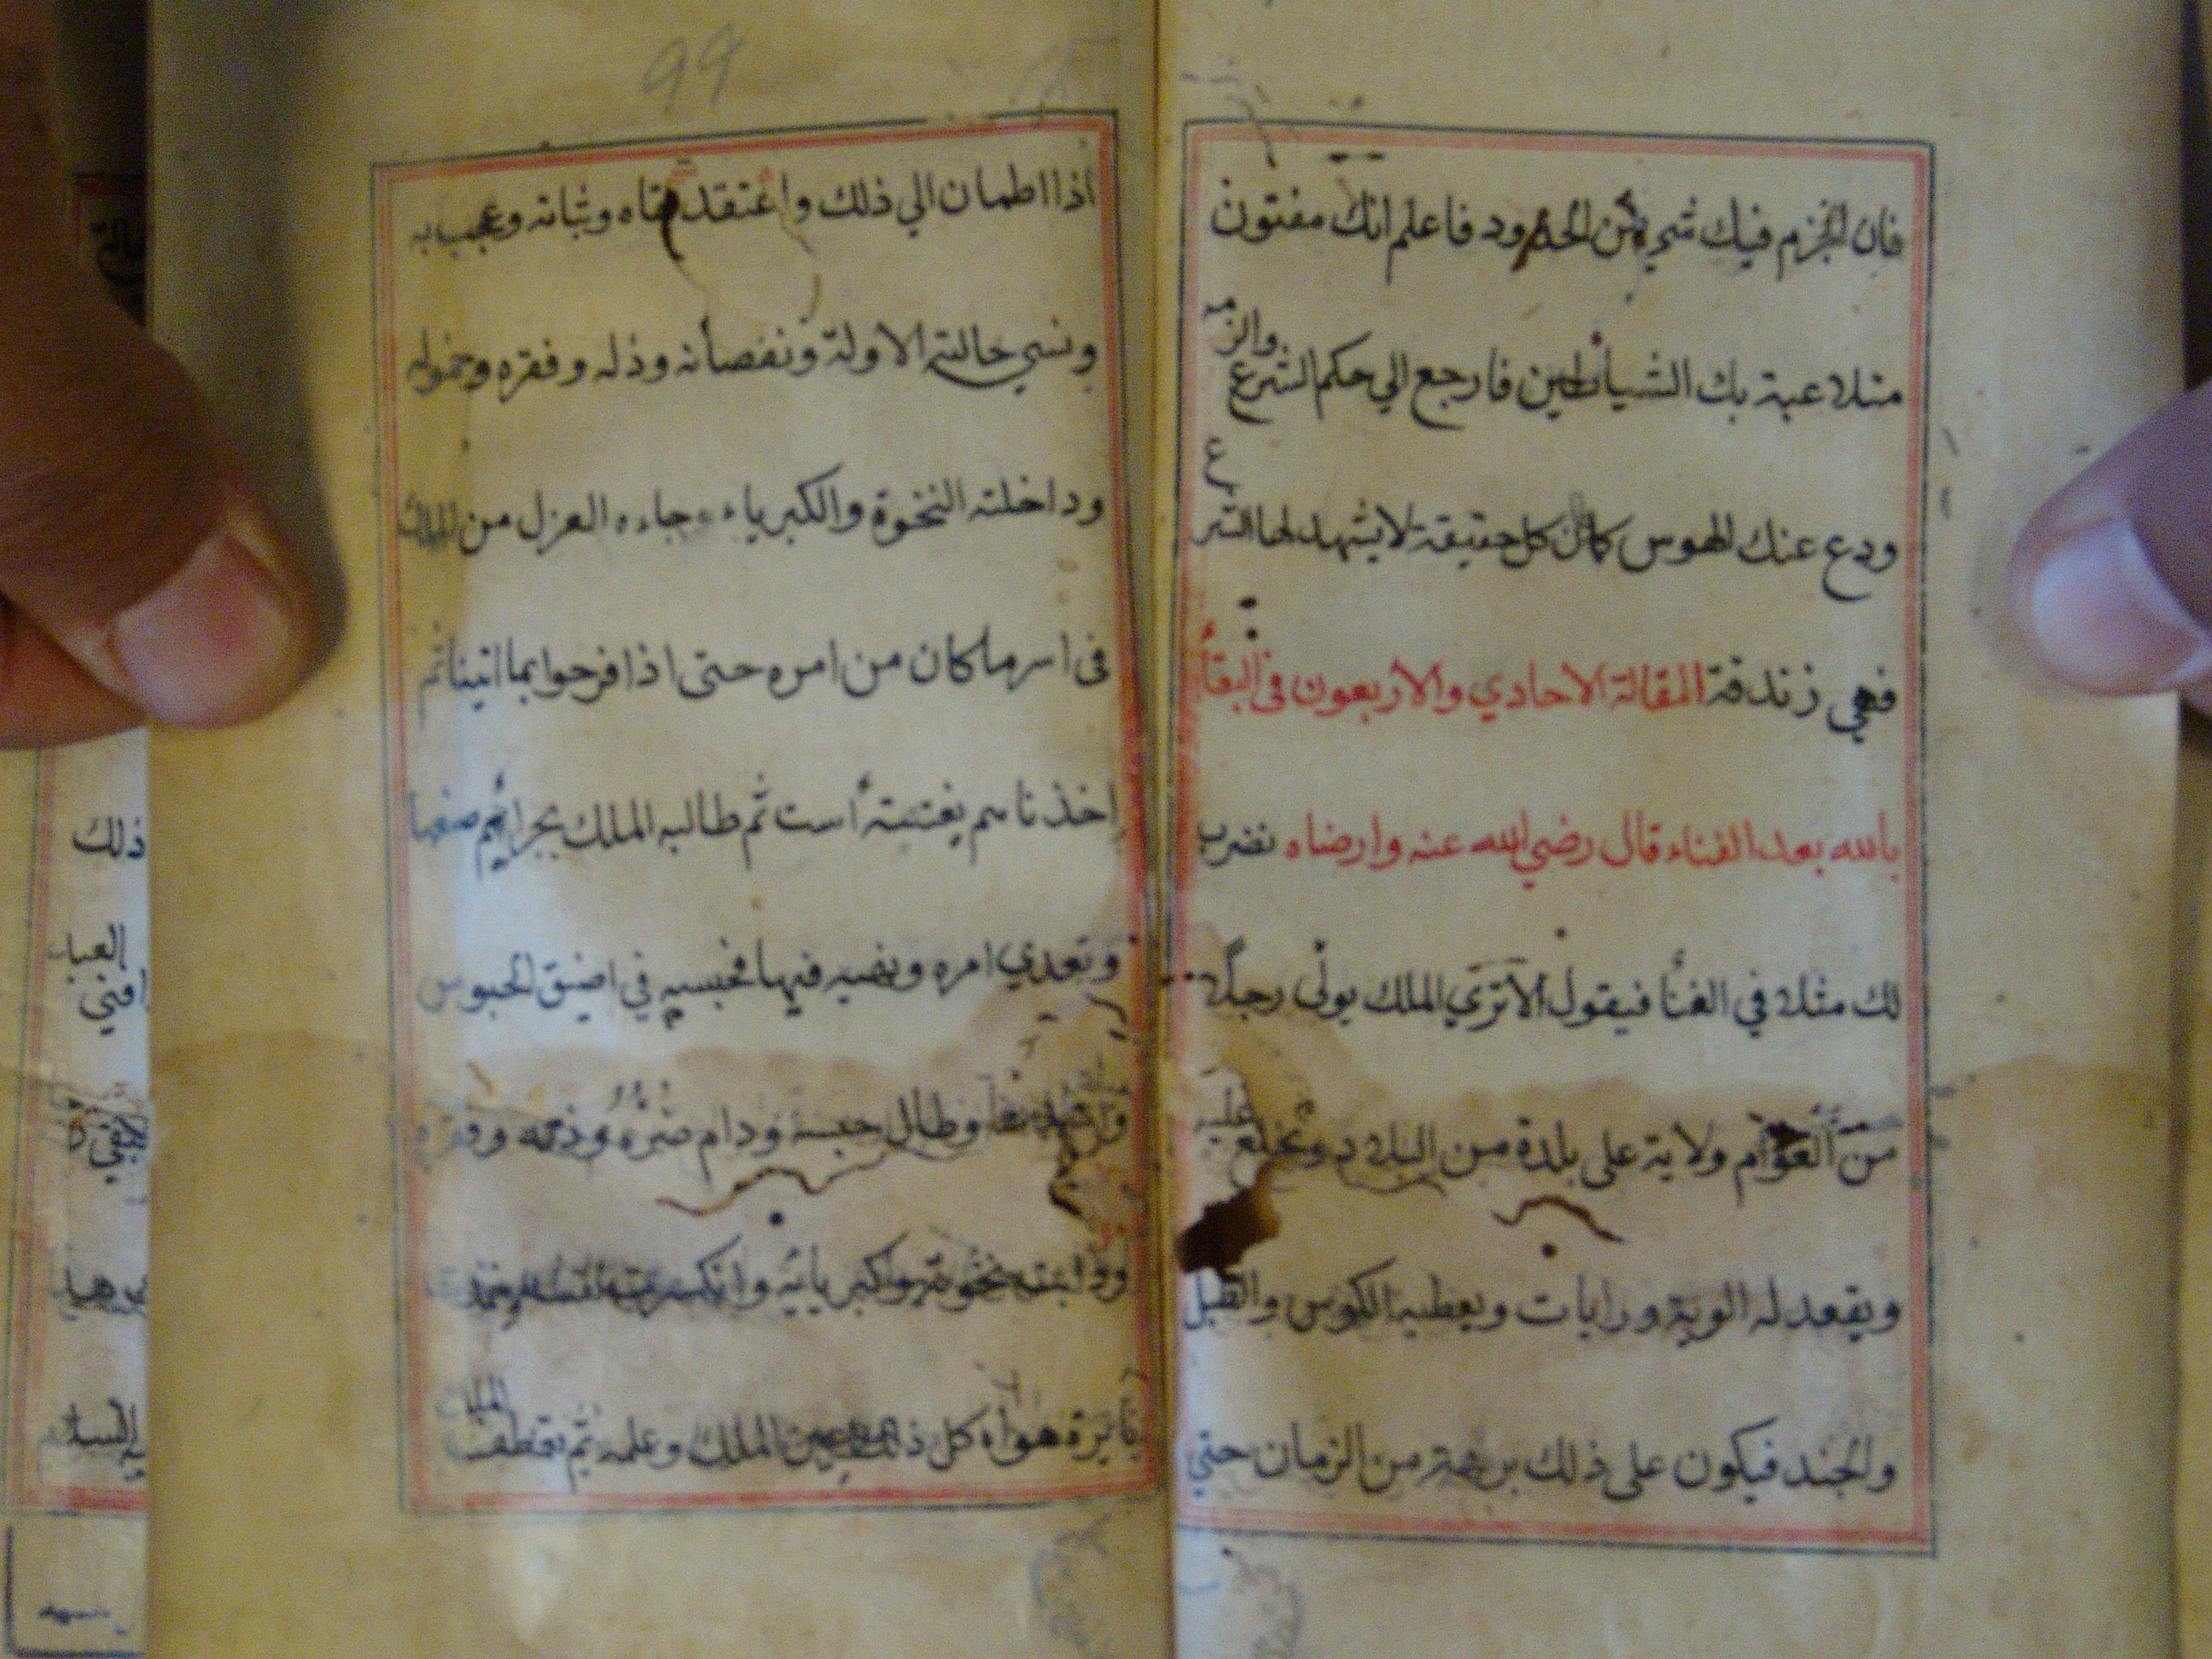 فان انخرم فيك شيء من الحدود فاعلم انك مفتون
متلاعبة بك الشياطين فارجع الي حكم الشرع والزمه
ودع عنك الهوس لان كل حقيقة لا يشهد لها الشرع
فهي زندقة المقالة الاحادي والاربعون في البقأ
بالله بعد الفناء قال رضي الله عنه وارضاه نضرب
لك مثلا في الغنأ فيقول ألا تري الملك يولى رجلا
من العوام ولاية على بلدة من البلاد ويخلع عليه
ويقعد له الوية ورايات ويعطيه الكوس والطبل
والجند فيكون على ذلك برهة من الزمان حتي
99
اذا اطمان الي ذلك واعتقد بقاه وثباته وعجب به
ونسي حالته الاولة ونقصانه وذله وفقره وخموله
وداخلته النخوة والكبرياء جاءه العزل من الملك
فى اسر ما كان من امره حتى اذا فرحوا بما اتينا ثم
اخذناهم ثم طالبه الملك بجرائم صنعها
وتعدي امره ونهيه فيها فحبسه في اضيق الحبوس
وطال حبسه ودام ضره وذله وفقره
وذابت نخوته وكبريائه وانكسرت نفسه وخمدت
نايرة هواه كل ذلك بعين الملك وعلمه ثم
الملك
ذلك
العبد
افني